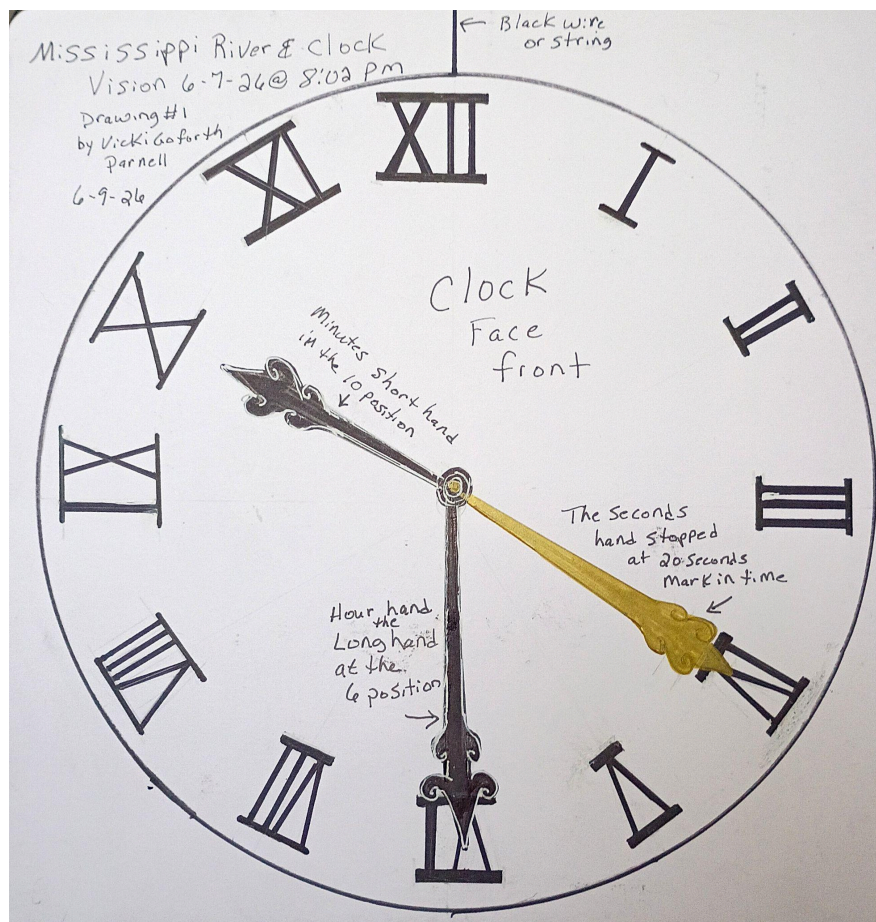 Mississippi River & Clock
Vision 6-7-26@ 8:02 PM
Drawing #1
by Vicki Goforth
Parnell
6-9-26
← Black wire
or string
XII
I
II
III
IV
V
VI
VII
VIII
IX
X
XI
Clock
Face
front
Minutes short hand
in the 10 position
The Seconds
hand stopped
at 20 seconds
mark in time
Hour hand
the
Long hand
at the
6 position